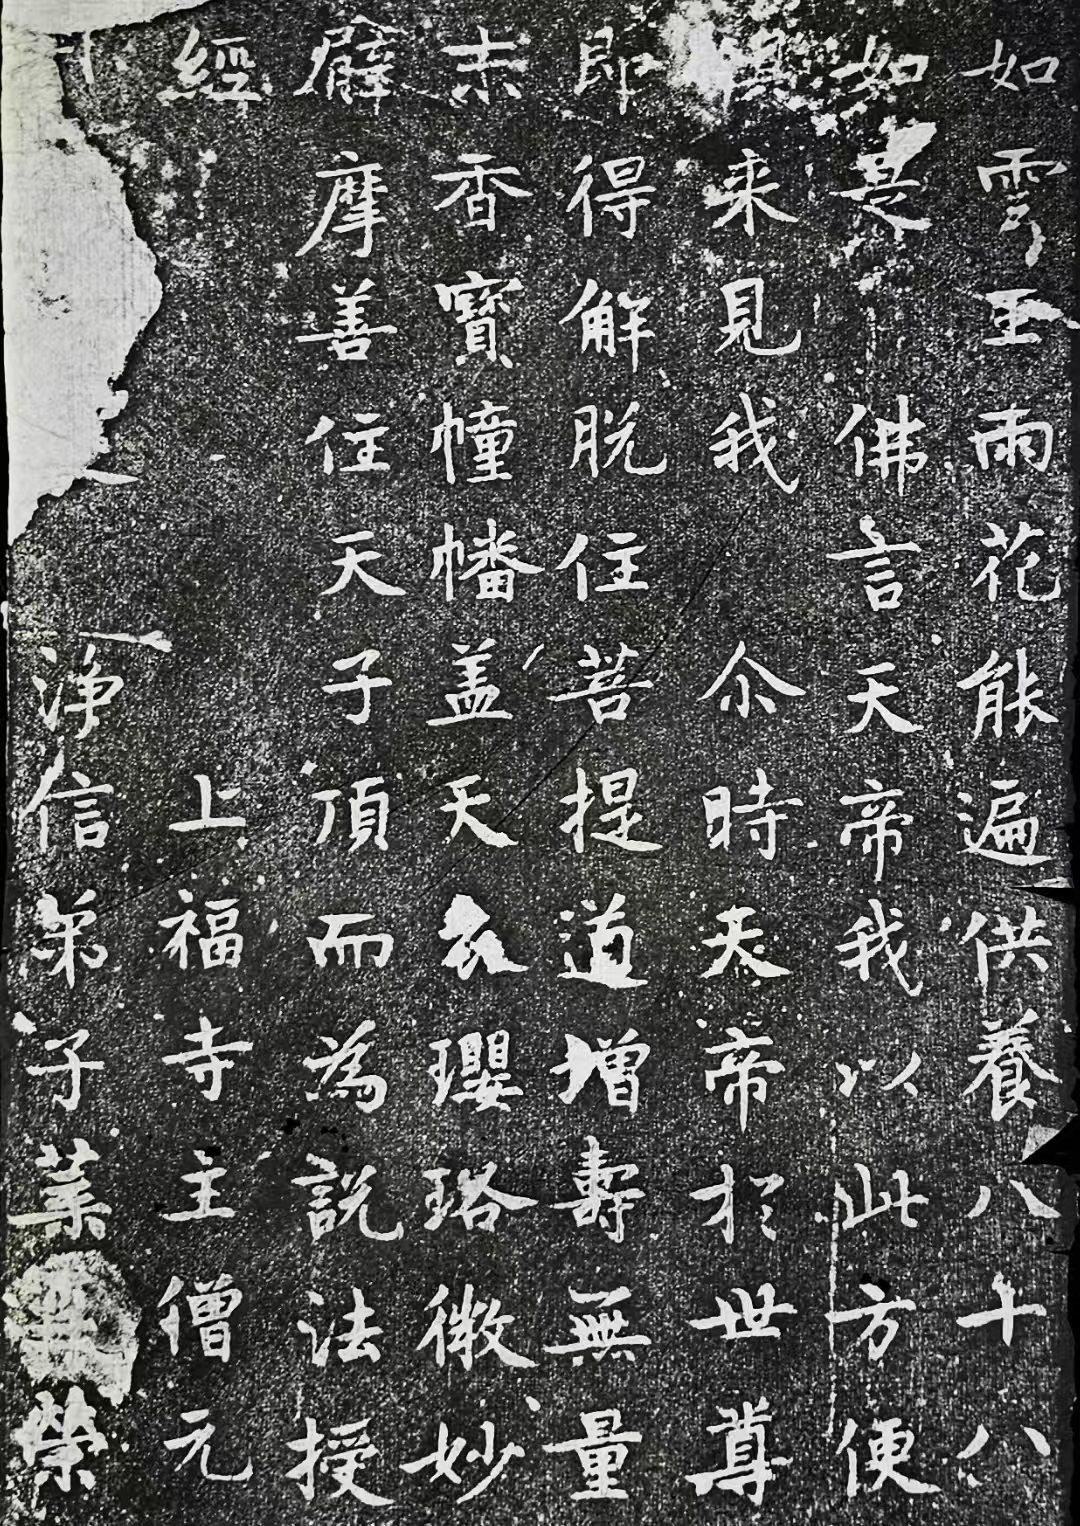 如雲王雨花能遍供養八十八
如是 佛言天帝我以此方便
来見我 尒時天帝於世尊
即得解脱住菩提道增壽無量
末香寶幢幡盖天衣瓔珞微妙
臂摩善住天子頂而為説法授
經 上福寺主僧元
淨信弟子葉榮